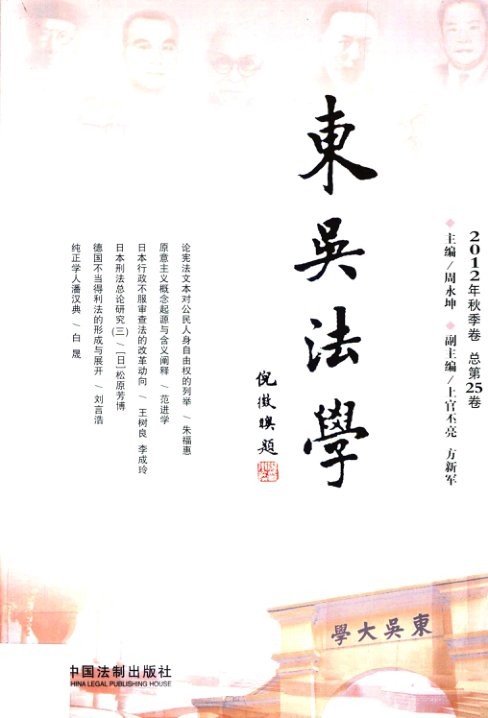 東吳法學
倪徵𣋉題
2012年秋季卷 总第25卷
◆主编/周永坤 ◆副主编/上官丕亮 方新军
论宪法文本对公民人身自由权的列举 \ 朱福惠
原意主义概念起源与含义阐释 \ 范进学
日本行政不服审查法的改革动向 \ 王树良 李成玲
日本刑法总论研究(三) \ [日]松原芳博
德国不当得利法的形成与展开 \ 刘言浩
纯正学人潘汉典 \ 白晟
學大吳東
中国法制出版社
HINA LEGAL PUBLISHING HOUSE